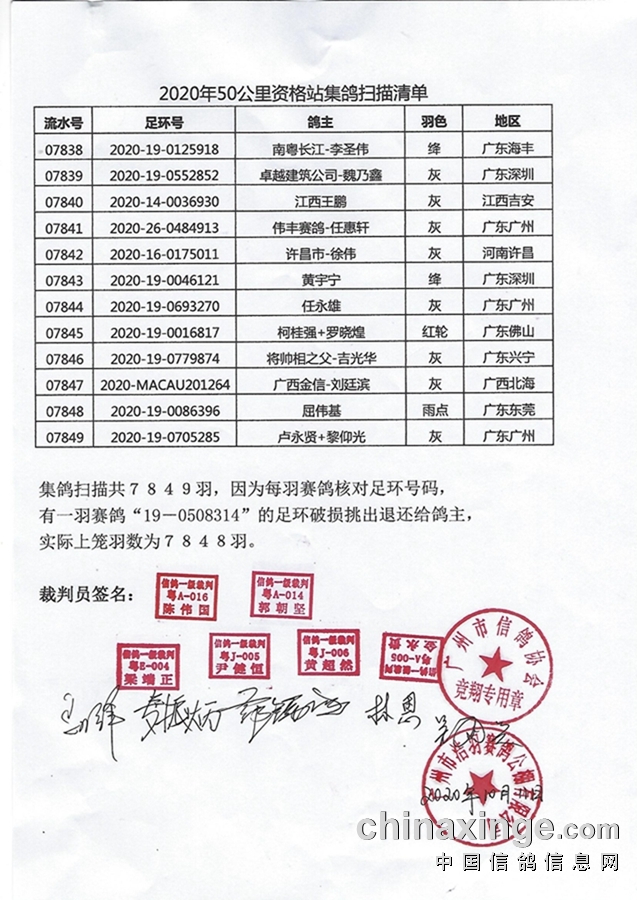 2020年50公里资格站集鸽扫描清单
流水号 足环号 鸽主 羽色 地区
07838 2020-19-0125918 南粤长江-李圣伟 绛 广东海丰
07839 2020-19-0552852 卓越建筑公司-魏乃鑫 灰 广东深圳
07840 2020-14-0036930 江西王鹏 灰 江西吉安
07841 2020-26-0484913 伟丰赛鸽-任惠轩 灰 广东广州
07842 2020-16-0175011 许昌市-徐伟 灰 河南许昌
07843 2020-19-0046121 黄宇宁 绛 广东深圳
07844 2020-19-0693270 任永雄 灰 广东广州
07845 2020-19-0016817 柯桂强+罗晓煌 红轮 广东佛山
07846 2020-19-0779874 将帅相之父-吉光华 灰 广东兴宁
07847 2020-MACAU201264 广西金信-刘廷滨 灰 广西北海
07848 2020-19-0086396 屈伟基 雨点 广东东莞
07849 2020-19-0705285 卢永贤+黎仰光 灰 广东广州
集鸽扫描共７８４９羽，因为每羽赛鸽核对足环号码，
有一羽赛鸽“19－0508314”的足环破损挑出退还给鸽主，
实际上笼羽数为７８４８羽。
裁判员签名：
信鸽一级裁判
粤A-016
陈伟国
信鸽一级裁判
粤A-014
郭朝坚
信鸽一级裁判
粤E-004
梁端正
信鸽一级裁判
粤J-005
尹健恒
信鸽一级裁判
粤J-006
黄超然
信鸽一级裁判
粤A-005
金永贵
广州市信鸽协会
竞翔专用章
林恩
2020年10月
chinaxinge.com
中国信鸽信息网